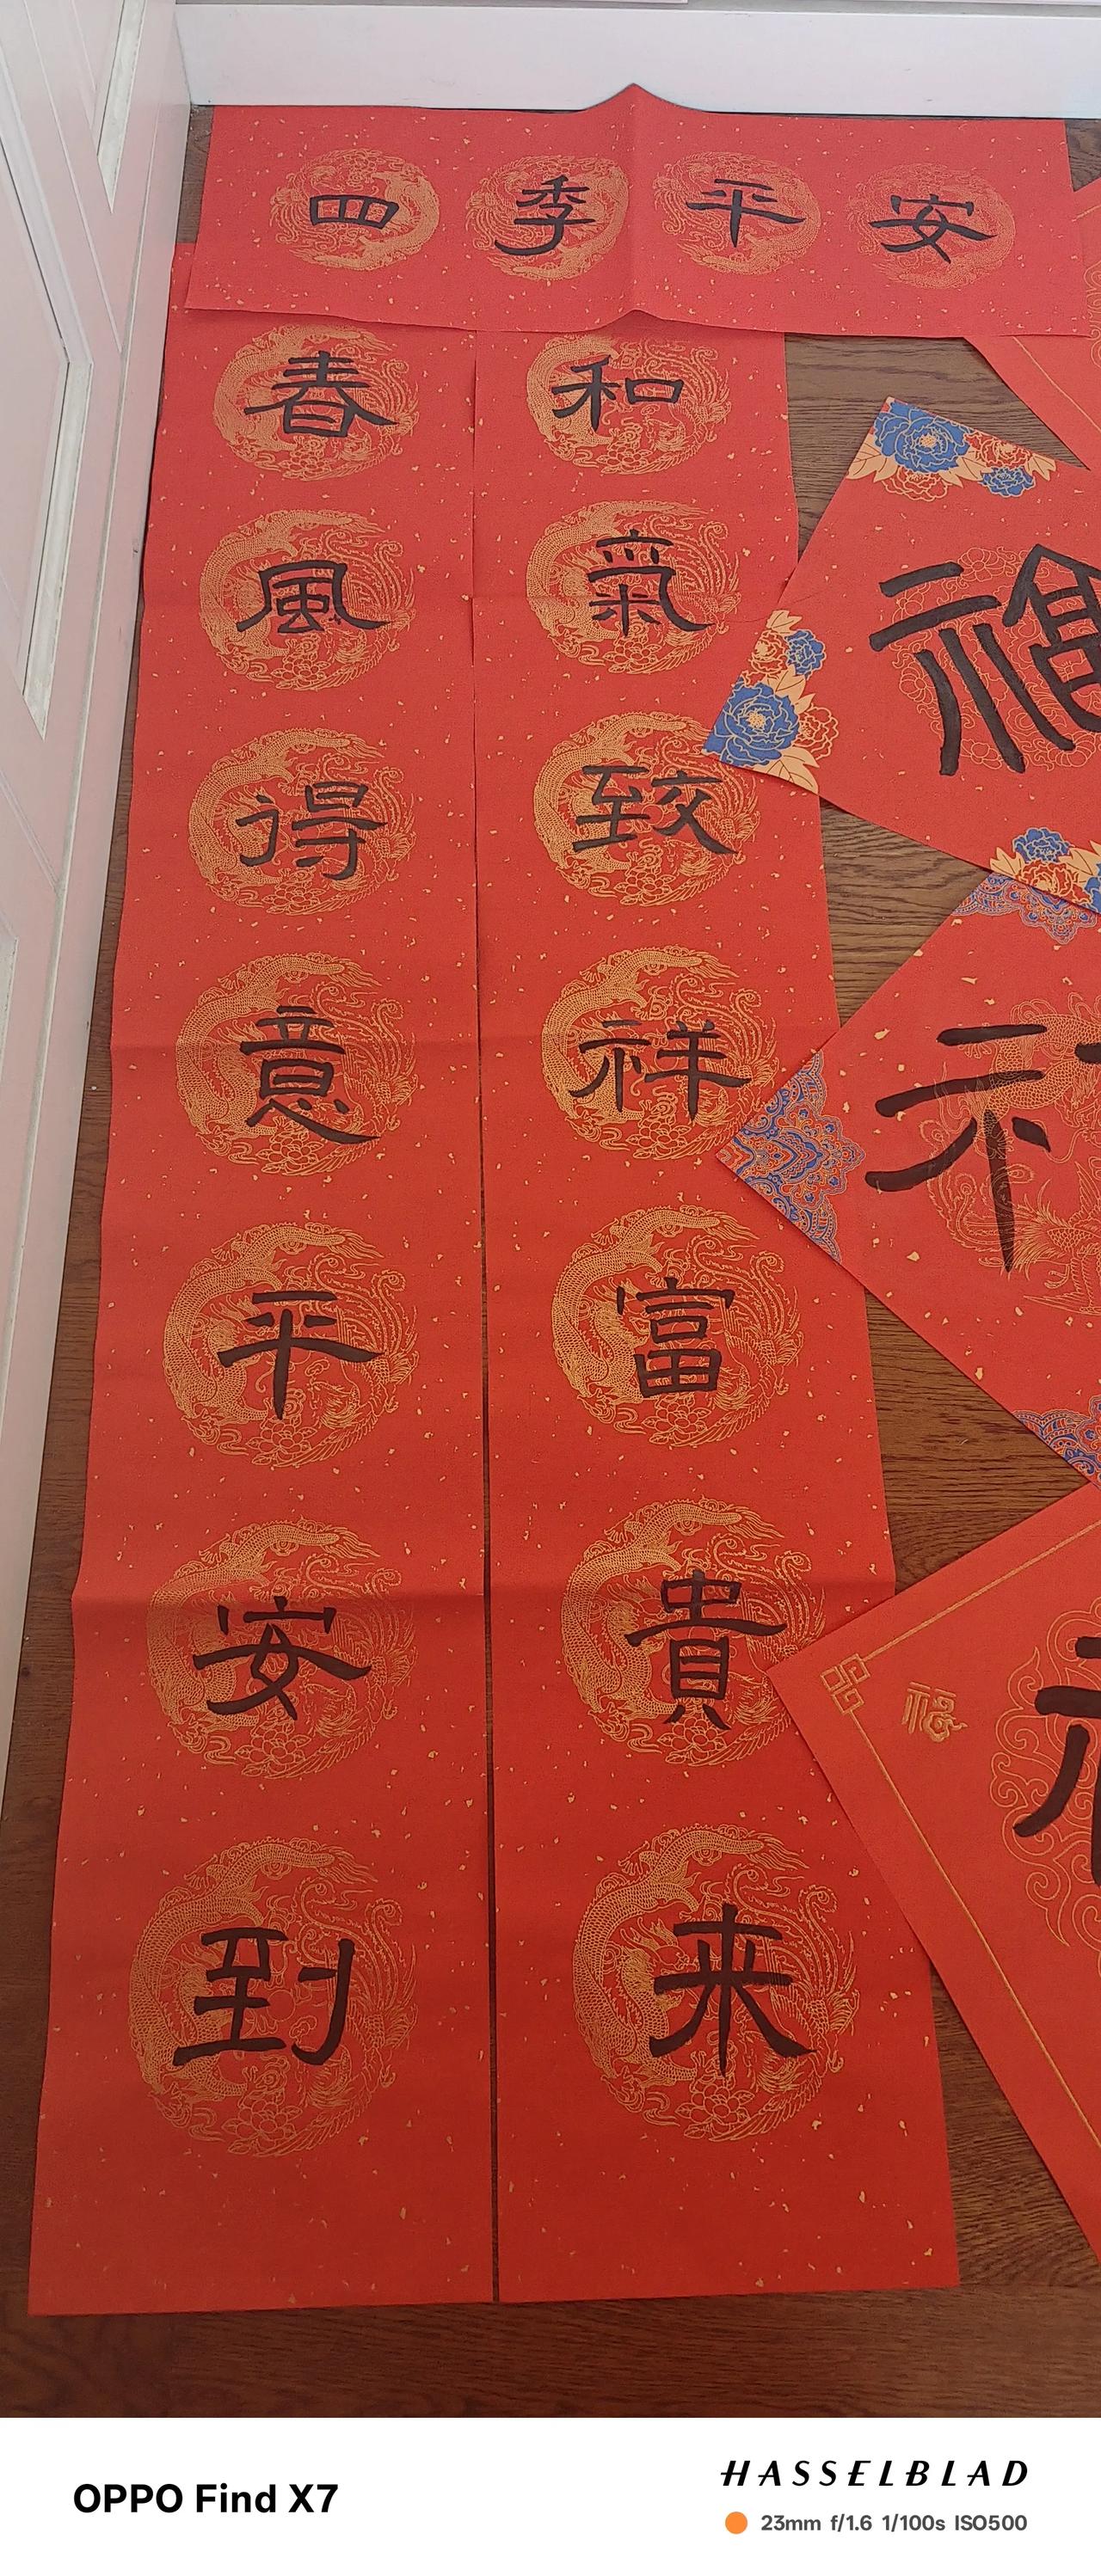 四季平安
和氣致祥富貴来
春風得意平安到
福
福
OPPO Find X7
HASSELBLAD
23mm f/1.6 1/100s ISO500